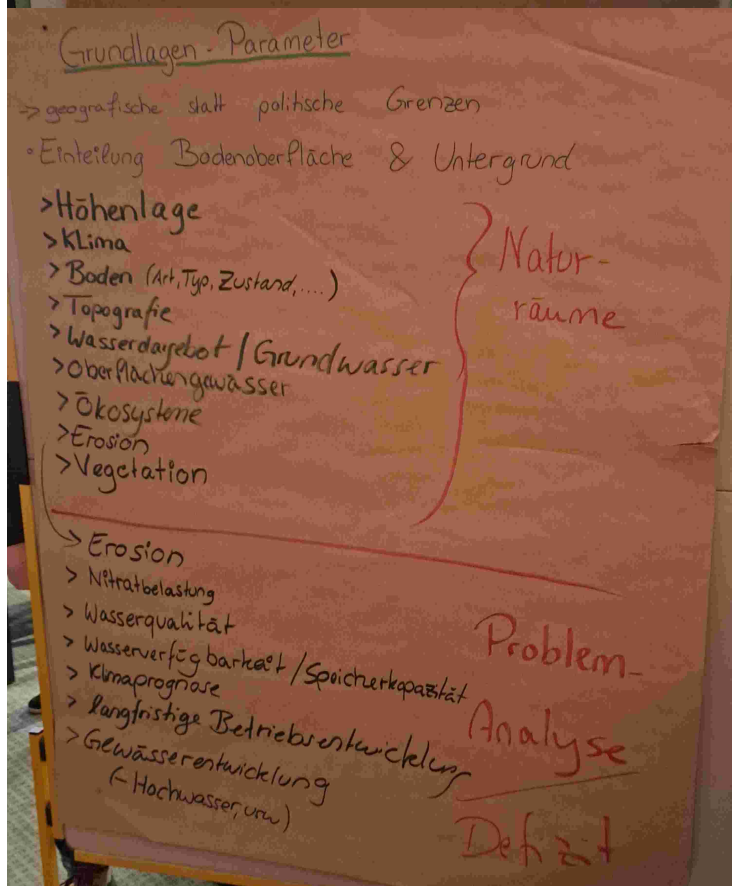 Grundlagen - Parameter
-> geografische statt politische Grenzen
• Einteilung Bodenoberfläche & Untergrund
>Höhenlage
>Klima
> Boden (Art, Typ, Zustand, ....)
> Topografie
> Wasserdargebot / Grundwasser
>Oberflächengewässer
> Ökosysteme
>Erosion
>Vegetation
Natur-
räume
> Erosion
> Nitratbelastung
> Wasserqualität
> Wasserverfügbarkeit / Speicherkapazität
> Klimaprognose
> langfristige Betriebsentwicklung
> Gewässerentwicklung
(- Hochwasser, usw)
Problem-
Analyse
Defizit